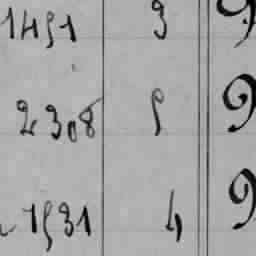 1451 3 9
2308 5 9
1531 4 9